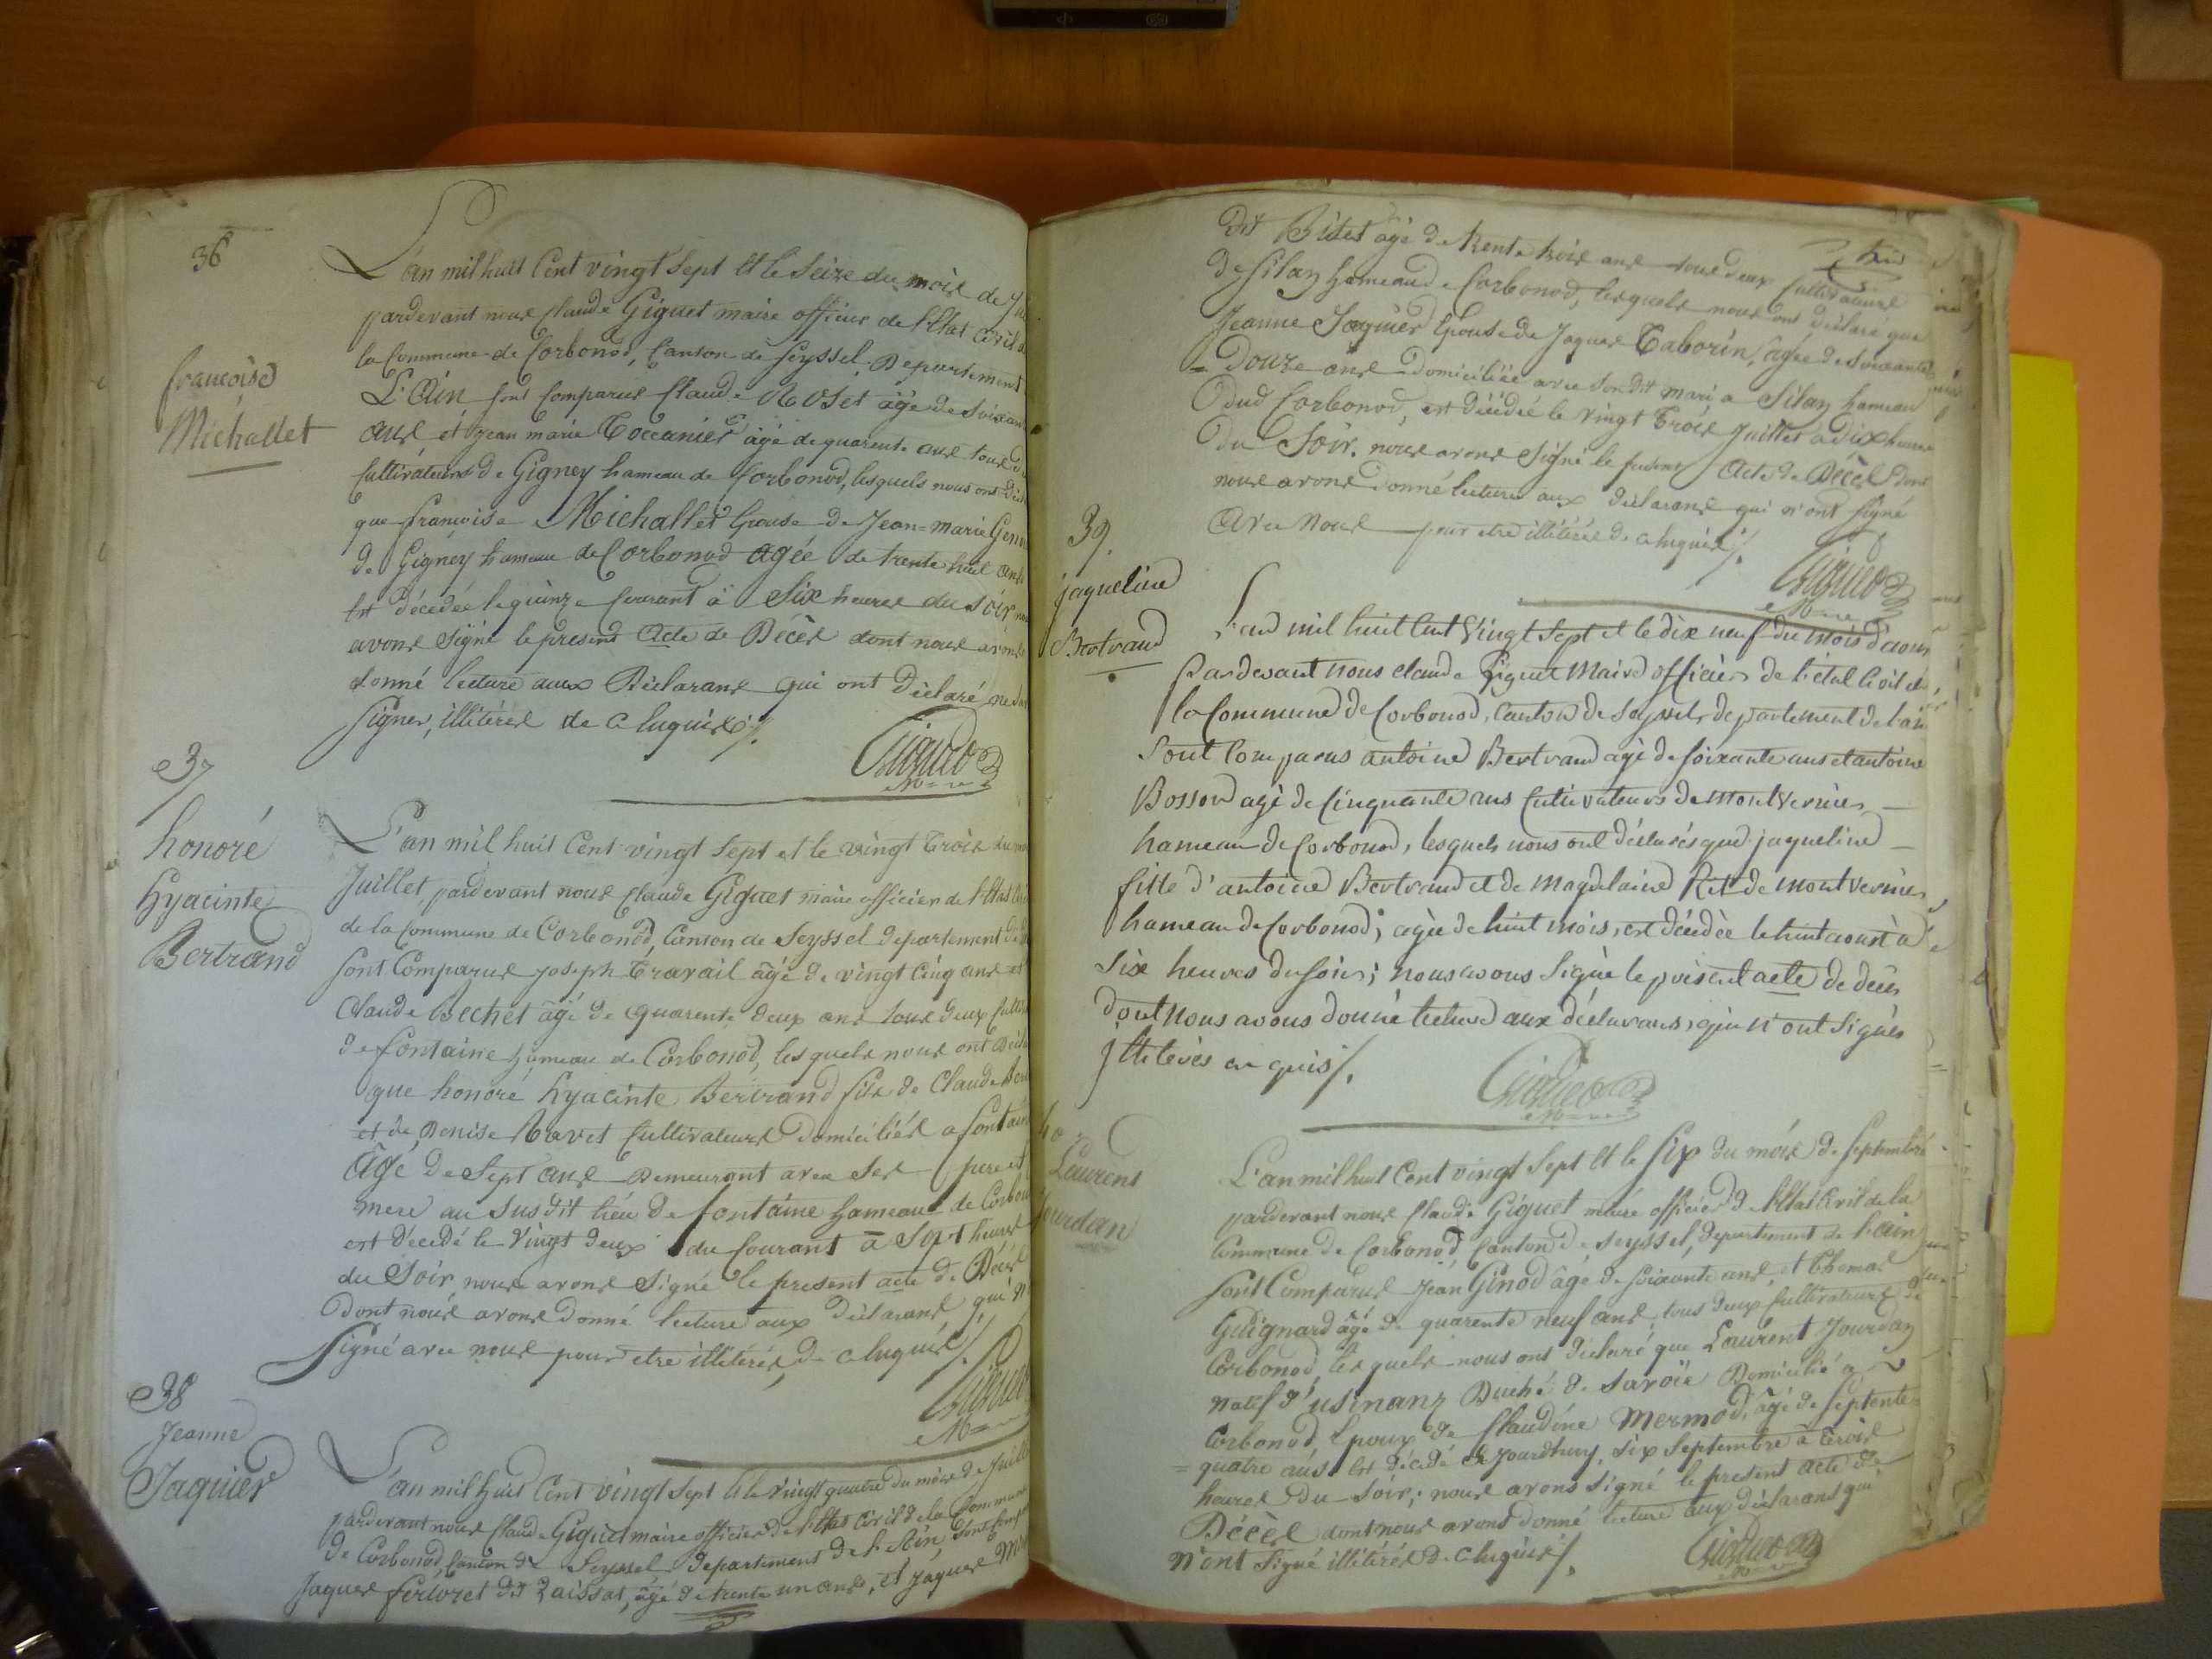 36
françoise
Michallet
L'an mil huit Cent vingt Sept et le Seize du mois de
pardevant nous Claude Giguet maire officier de l'Etat Civil
la Commune de Corbonod, Canton de Seyssel, Departement
L'Ain sont Comparus Claude Roset âgé de Soixan
ans et jean marie Coccanier âgé de quarente ans tous
Cultivateurs de Gigney hameau de Corbonod, lesquels nous ont
que françoise Michallet Epouse de Jean=marie
de Gigney hameau de Corbonod agée de trente huit ans
est décédée le quinze Courant à Six heures du Soir
avons Signé le present Acte de Décès dont nous avons
donné lecture aux Déclarans qui ont déclaré
Signer, illitérés de ce luquis ./.
37
honoré
hyacinte
Bertrand
L'an mil huit Cent vingt Sept et le vingt trois du
Juillet, pardevant nous Claude Giguet maire officier de l'Etat
de la Commune de Corbonod, Canton de Seyssel departement
sont Comparus joseph Travail âgé de vingt Cinq ans et
Claude Bechet âgé de quarente deux ans tous deux
de fontaine hameau de Corbonod, lesquels nous ont
que honoré hyacinte Bertrand fils de Claude
et de Denise Ravet Cultivateurs Domiciliés a
âgé de Sept ans Demeurant avec Ses pere et
mere au Susdit lieu de fontaine hameau de
est décédé le Vingt deux du Courant à Sept heures
du Soir, nous avons Signé le present acte de Décès
dont nous avons Donné lecture aux déclarans, qui
Signé avec nous pour etre illitérés, de ce luquis ./.
38
Jeanne
Jaquier
L'an mil huit Cent vingt Sept et le vingt quatre du mois de
pardevant nous Claude Giguet maire officier de l'Etat Civil de la Commune
de Corbonod, Canton de Seyssel departement de l'Ain, Sont
Jaques fertoret dit Zaissat, âgé de trente un ans, et jaques
dit Bitet âgé de trente trois ans tous deux Cultivateurs
de Silan hameau de Corbonod, lesquels nous ont déclaré que
Jeanne Jaquier Epouse de Jaques Taborin, âgée de Soixante
= Douze ans Domiciliée avec Son dit mari a Silan hameau
dud Corbonod, est décédée le vingt trois Juillet à dix heures
du Soir. nous avons Signé le présent Acte de Décès dont
nous avons Donné lecture aux déclarans qui n'ont Signé
avec nous pour etre illitérés de ce luquis ./.
39
jaqueline
Bertrand
L'an mil huit Cent Vingt Sept et le dix neuf du mois d'aout
Pardevant nous claude Giguet Maire officier de l'état Civil
la Commune de Corbonod, Canton de Seyssel, departement de l'ain
Sont Comparus antoine Bertrand agé de soixante ans et antoine
Bosson agé de Cinquante ans Cultivateurs de montvernier
hameau de Corbonod, lesquels nous ont déclarés que jaqueline
fille d'antoine Bertrand et de magdelaine Ret de montvernier
hameau de Corbonod, agée de huit mois, est décédée le huit aoust à
Six heures du Soir; nous avons Signé le présent acte de décès
dont nous avons donné lecture aux déclarans, qui n'ont Signés
Jlliterés en quis ./.
40
Laurent
Jourdan
L'an mil huit Cent vingt Sept et le Six du mois de Septembre
pardevant nous Claude Giguet maire officier de l'Etat Civil de la
Commune de Corbonod, Canton de Seyssel, departement de l'ain
sont Comparus Jean Ginod âgé de soixante ans, et thomas
Guignard âgé de quarente neuf ans, tous deux Cultivateurs de
Corbonod, lesquels nous ont déclaré que Laurent Jourdan
natif d'usinanz Duché de Savoïe Domicilié a
Corbonod, Epoux de Claudine Mermod, âgé de Septente
= quatre ans est décédé ce jourdhuy, Six Septembre à trois
heures du Soir; nous avons Signé le present acte de
Décès dont nous avons donné lecture aux déclarans qui
n'ont Signé illitérés de ce luquis ./.